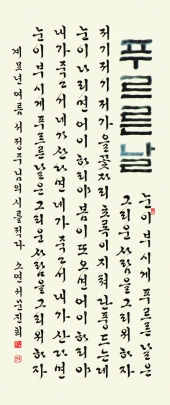 푸르른 날
눈이 부시게 푸르른 날은
그리운 사람을 그리워하자
저기 저기 저 가을 꽃자리 초록이 지쳐 단풍 드는데
눈이 나리면 어이 하리야 봄이 또 오면 어이 하리야
내가 죽고서 네가 산다면 네가 죽고서 내가 산다면
눈이 부시게 푸르른 날은 그리운 사람을 그리워하자
계묘년 여름 서정주님의 시를